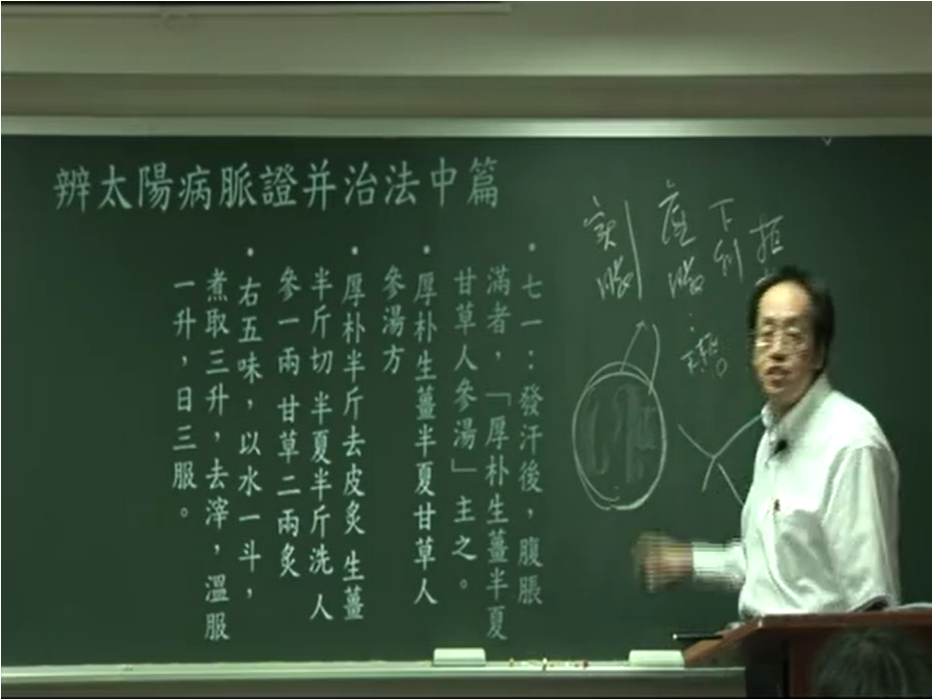 辨太陽病脈證并治法中篇
• 七一：發汗後，腹脹
滿者，「厚朴生薑半夏
甘草人參湯」主之。
• 厚朴生薑半夏甘草人
參湯方
• 厚朴半斤去皮炙 生薑
半斤切 半夏半斤洗 人
參一兩 甘草二兩炙
• 右五味，以水一斗，
煮取三升，去滓，溫服
一升，日三服。
下利
虛脹
實脹